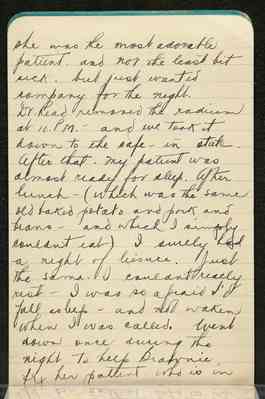 she was the most adorable
patient and not the least bit
sick. but just wanted
company for the night.
Dr. Read removed the radium
at 11. P.M. - and we took it
down to the safe - in
After that - my patient was
almost ready for sleep. After
lunch - (which was the same
old baked potato and pork and
beans - and which I simply
couldn't eat) I surely had
a night of leisure. Just
the same I couldn't really
rest - I was so afraid I'd
fall asleep - and not waken
when I was called. Went
down once during the
night to help
fix her patient who is in